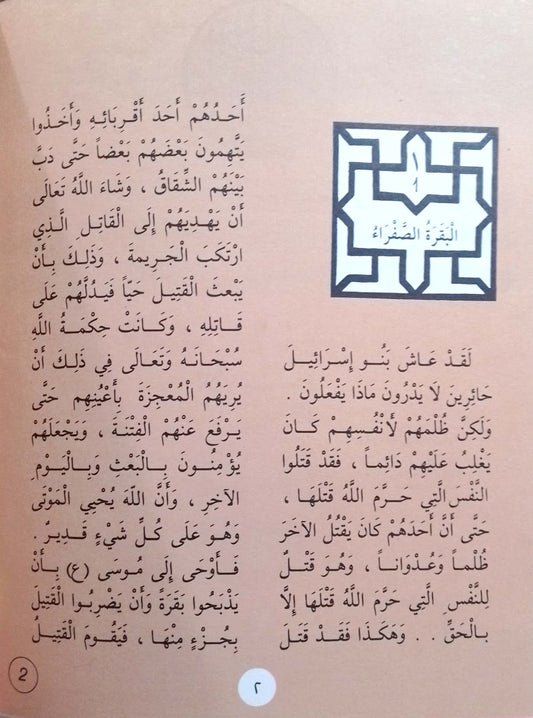 ١
الْبَقَرَةُ الصَّفْرَاءُ
لَقَدْ عَاشَ بَنُو إِسْرَائِيلَ
حَائِرِينَ لَا يَدْرُونَ مَاذَا يَفْعَلُونَ .
وَلَكِنَّ ظُلْمَهُمْ لأَنْفُسِهِمْ كَانَ
يَغْلِبُ عَلَيْهِمْ دَائِماً ، فَقَدْ قَتَلُوا
النَّفْسَ الَّتِي حَرَّمَ اللَّهُ قَتْلَهَا ،
حَتَّى أَنَّ أَحَدَهُمْ كَانَ يَقْتُلُ الآخَرَ
ظُلْماً وَعُدْوَاناً ، وَهُوَ قَتْلٌ
لِلنَّفْسِ الَّتِي حَرَّمَ اللَّهُ قَتْلَهَا إِلَّا
بِالْحَقِّ . . وَهَكَذَا فَقَدْ قَتَلَ
أَحَدُهُمْ أَحَدَ أَقْرِبَائِهِ وَأَخَذُوا
يَتَّهِمُونَ بَعْضَهُمْ بَعْضاً حَتَّى دَبَّ
بَيْنَهُمُ الشِّقَاقُ ، وَشَاءَ اللَّهُ تَعَالَى
أَنْ يَهْدِيَهُمْ إِلَى الْقَاتِلِ الَّذِي
ارْتَكَبَ الْجَرِيمَةَ ، وَذَلِكَ بِأَنْ
يَبْعَثَ الْقَتِيلَ حَيّاً فَيَدُلَّهُمْ عَلَى
قَاتِلِهِ ، وَكَانَتْ حِكْمَةُ اللَّهِ
سُبْحَانَهُ وَتَعَالَى فِي ذَلِكَ أَنْ
يُرِيَهُمُ الْمُعْجِزَةَ بِأَعْيُنِهِم حَتَّى
يَرْفَعَ عَنْهُمُ الْفِتْنَةَ ، وَيَجْعَلَهُمْ
يُؤْمِنُونَ بِالْبَعْثِ وَبِالْيَوْمِ
الآخِرِ ، وَأَنَّ اللَّهَ يُحْيِي الْمَوْتَى
وَهُوَ عَلَى كُلِّ شَيْءٍ قَدِيرٌ .
فَأَوْحَى إِلَى مُوسَى (ع) بِأَنْ
يَذْبَحُوا بَقَرَةً وَأَنْ يَضْرِبُوا الْقَتِيلَ
بِجُزْءٍ مِنْهَا ، فَيَقُومَ الْقَتِيلُ
٢
2